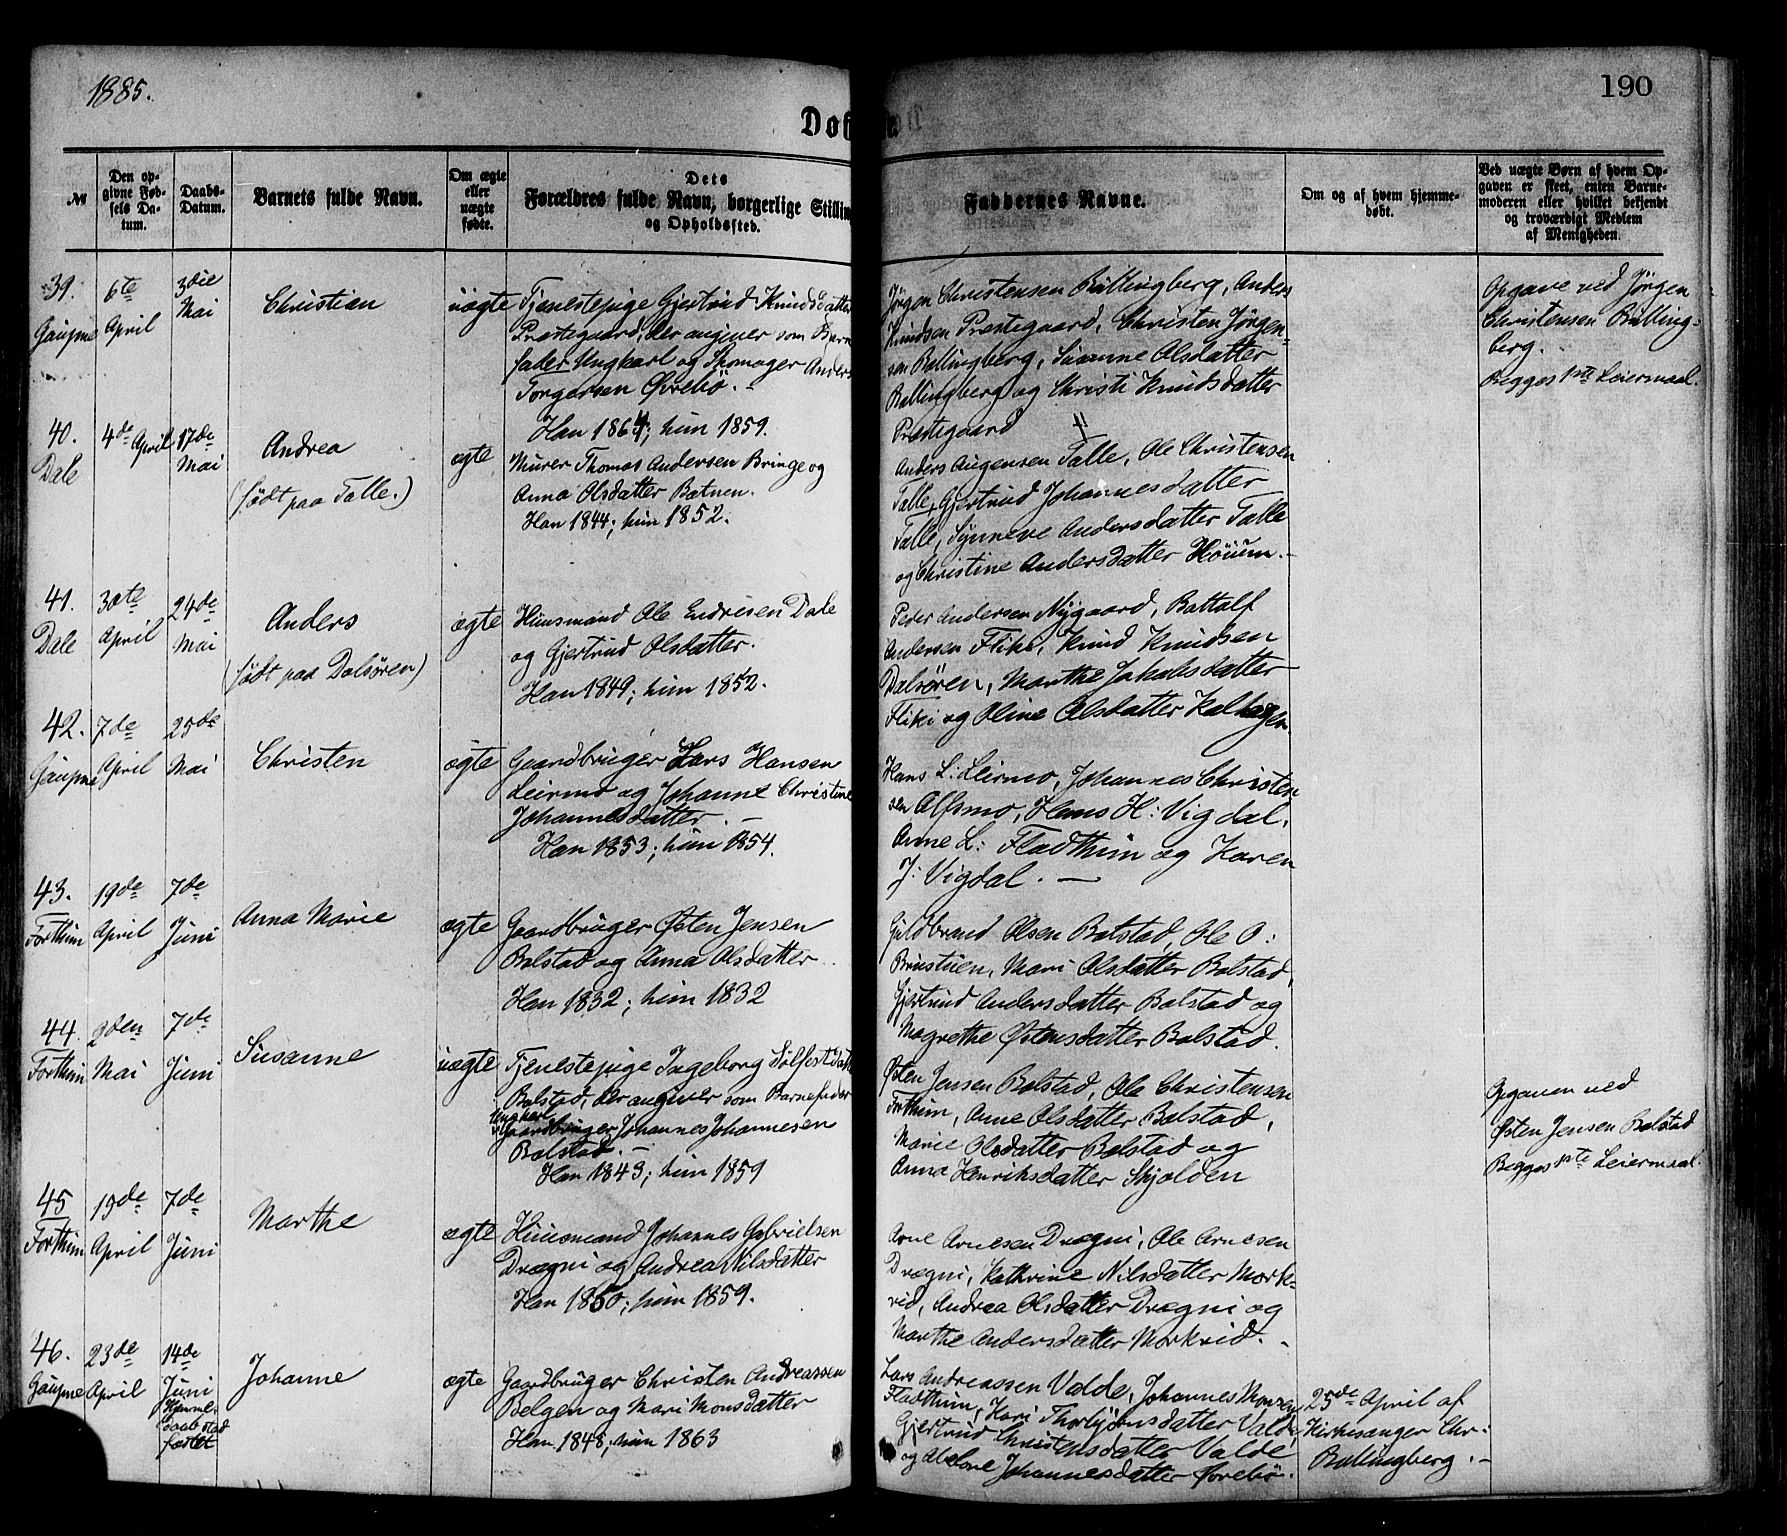 1885.
190
Døb
№
Den op-
givne Føb-
sels Da-
tum.
Daabs-
Datum.
Barnets fulde Navn.
Om ægte
eller
uægte
fødte.
Dets
Forældres fulde Navn, borgerlige Stillin
og Opholdssted.
Faddernes Navne.
Om og af hvem hjemme-
døbt.
Ved uægte Børn af hvem Op-
gaven er skeet, enten Barne-
moderen eller hvilket bekjendt
og troværdigt Medlem
af Menigheden.
39.
Gaupne
6te
April
3die
Mai
Christian
uægte
Tjenestepige Gjertrud Knudsdatter
Prestegaard, der angiver som Barne
fader Ungkarl og Skomager Anders
Torgersen Øvrebö. -
Han 1864; hun 1859.
Jörgen Christensen Bollingberg, Anders
Knudsen Prestegaard, Christen Jörgen-
sen Bollingberg, Susanne Olsdatter
Bollingberg og Christi Knudsdatter
Prestegaard
Opgave ved Jörgen
Christensen Bolling-
berg.
Begges 1ste Leiermaal.
40.
Dale
4de April
17de
Mai
Andrea
(födt paa Talle.)
ægte
Murer Thomas Andersen Bringe og
Anna Olsdatter Botnen.
Han 1844; hun 1852.
Anders Augensen Talle, Ole Christensen
Talle, Gjertrud Johannesdatter
Talle, Synneve Andersdatter Talle
og Christine Andersdatter Höium.-
41.
Dale
30te
April
24de
Mai
Anders
(födt paa Dalsören)
ægte
Huusmand Ole Endresen Dale
og Gjertrud Olsdatter.
Han 1849; hun 1852.
Peder Andersen Nygaard, Bottolf
Andersen Fliki, Knud Knudsen
Dalsören, Marthe Jakobsdatter
Fliki og Oline Olsdatter Kalhagen
42.
Gaupne
7de
April
25de
Mai
Christen
ægte
Gaardbruger Lars Hansen
Leirmo og Johanne Christine
Johannesdatter. -
Han 1853; hun 1854.
Hans L: Leirmo, Johannes Christen
sen Alfsmo, Hans H: Vigdal,
Anne L: Fladthun og Karen
J: Vigdal. -
43.
Forthun
19de
April
7de
Juni
Anna Marie
ægte
Gaardbruger Østen Jensen
Bolstad og Anna Olsdatter
Han 1832; hun 1832
Guldbrand Olsen Bolstad, Ole O:
Brustuen, Mari Olsdatter Bolstad,
Gjertrud Andersdatter Bolstad og
Magrethe Østensdatter Bolstad.
44.
Forthun
2den
Mai
7de
Juni
Susanne
uægte
Tjenestepige Ingeborg Sölfestdatt
Bolstad, der angiver som Barnefader
Ungkarl
Gaardbruger Johannes Johannesen
Bolstad. -
Han 1843; hun 1859
Østen Jensen Bolstad, Ole Christensen
Forthun, Anne Olsdatter Bolstad,
Marie Olsdatter Bolstad og
Anna Henriksdatter Skjolden
Opgaven ved
Østen Jensen Bolstad
Begges 1ste Leiermaal.
45
Forthun
19de
April
7de
Juni
Marthe
ægte
Huusmand Johannes Gabrielsen
Drægni og Andrea Nilsdatter
Han 1850; hun 1859.
Arne Arnesen Drægni, Ole Arnesen
Drægni, Kathrine Nilsdatter Mork-
rid, Andrea Olsdatter Drægni og
Marthe Andersdatter Morkrid. -
46.
Gaupne
23de
April
14de
Juni
Hjemme-
daab stad
fæstet
Johanne
ægte
Gaardbruger Christen Andreassen
Bolgen og Mari Monsdatter
Han 1848; hun 1863
Lars Andreassen Volde, Johannes Monsen
Fladthun, Kari Thorbjörnsdatter Volde,
Gjertrud Christensdatter Volde
og Abelone Johannesdatter Øvrebö.
25de April af
Kirkesanger Chr:
Bollingberg. -